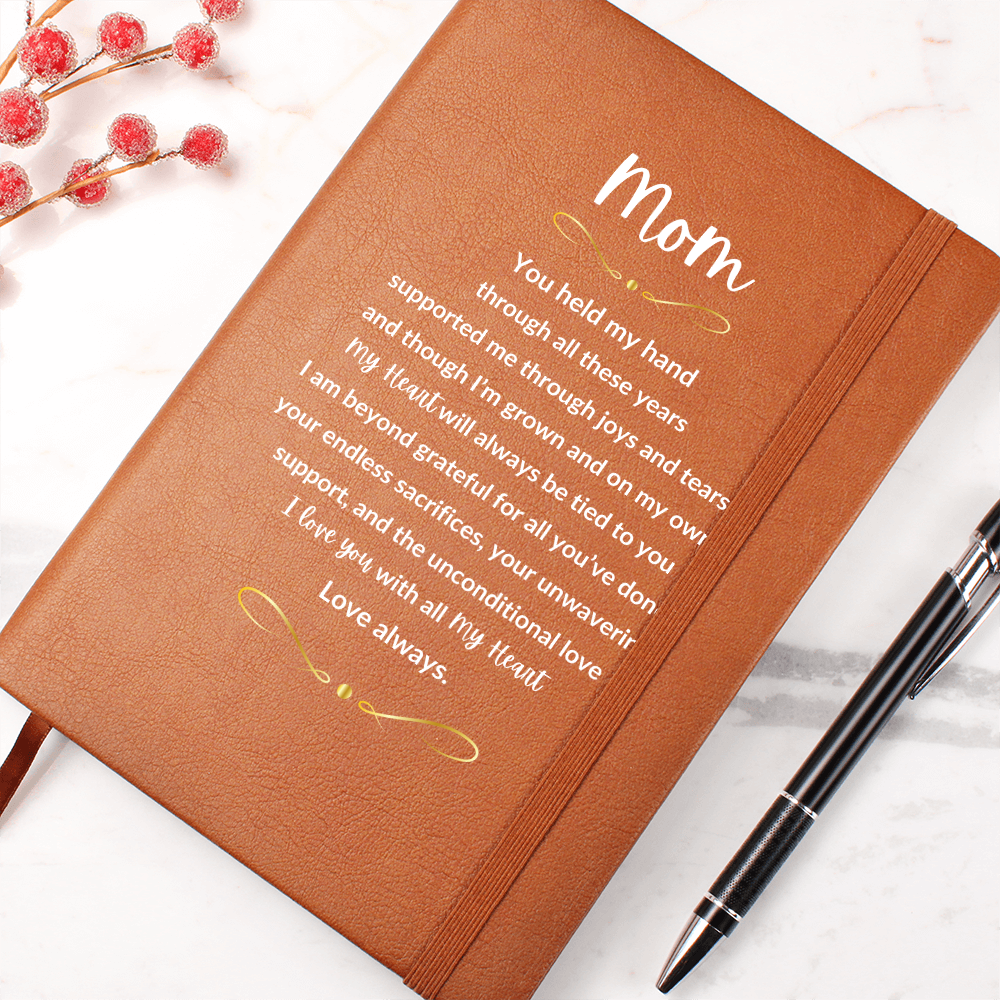 Mom
You held my hand
through all these years
supported me through joys and tears
and though I'm grown and on my own
My Heart will always be tied to you
I am beyond grateful for all you've don
your endless sacrifices, your unwaverin
support, and the unconditional love
I love you with all My Heart
Love always.